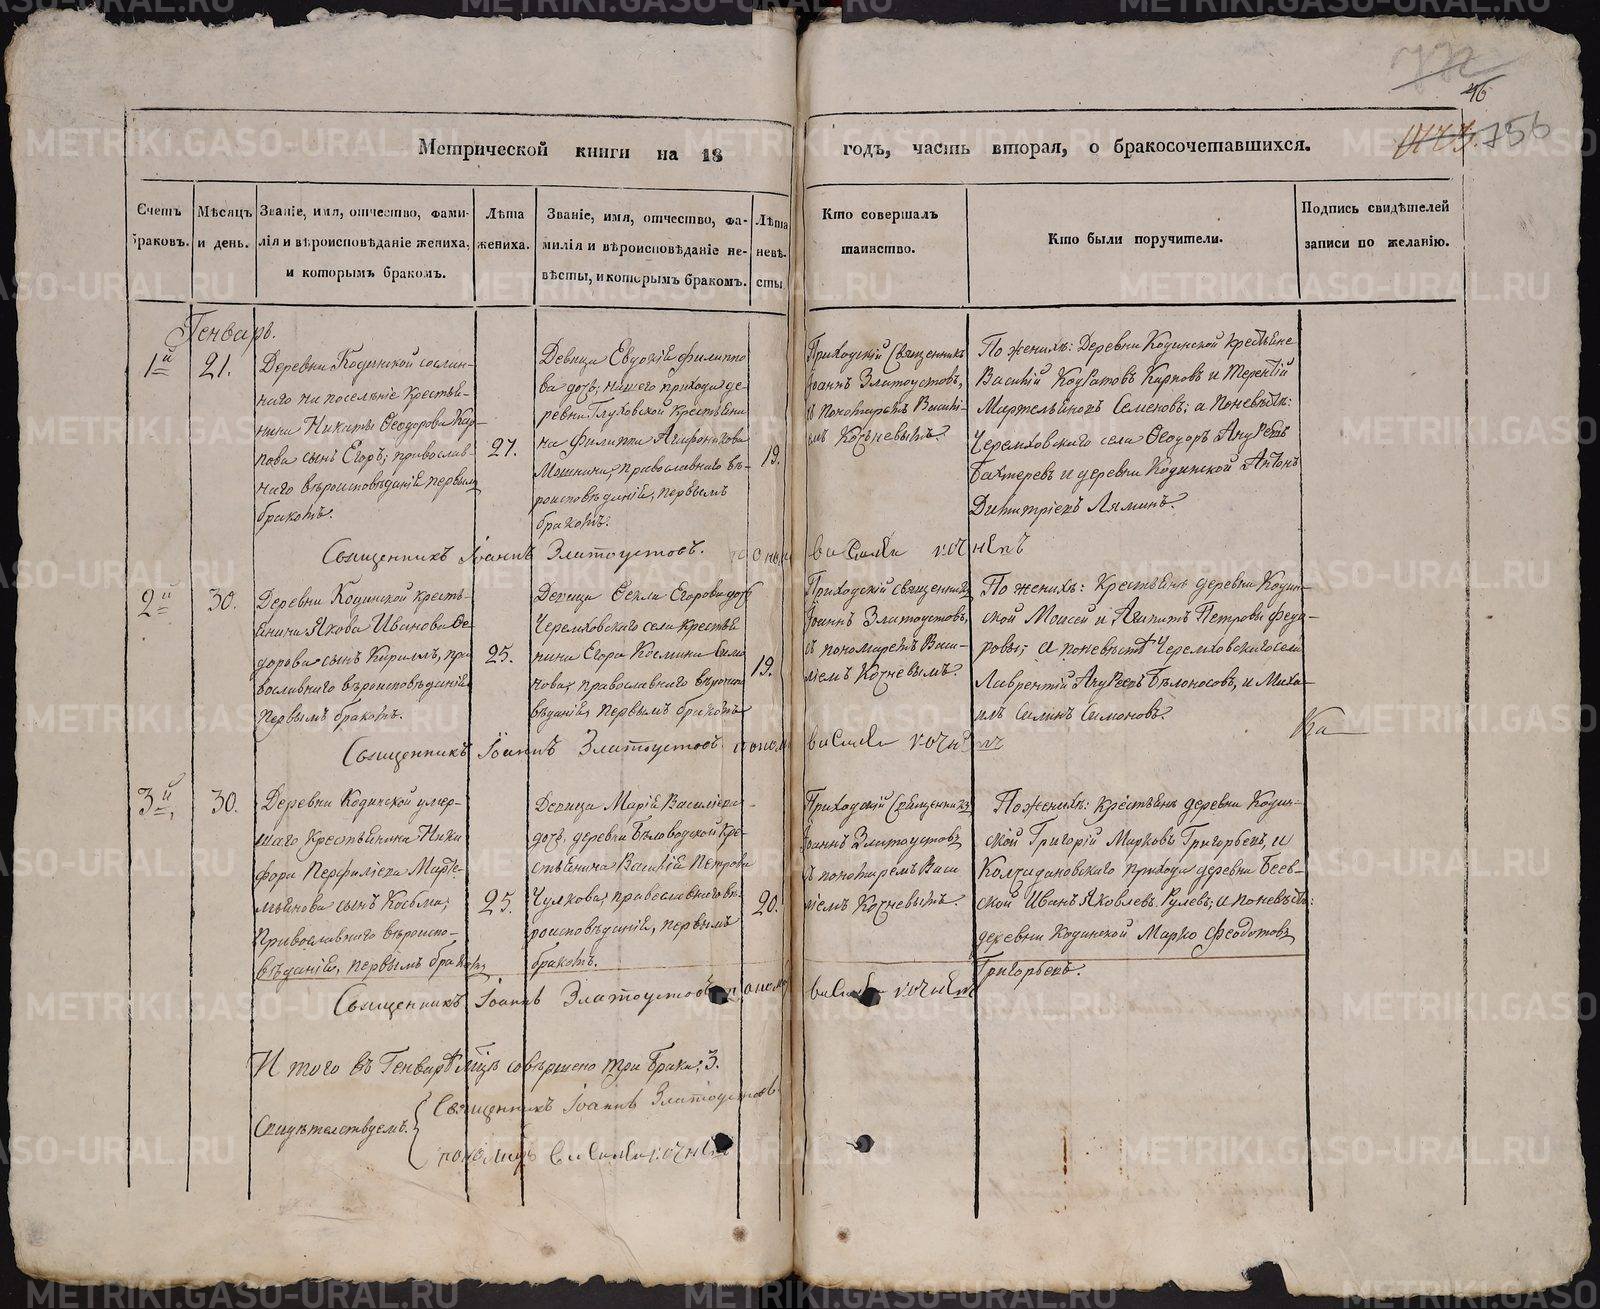 46
756
Метрической книги на 18
годъ, часть вторая, о бракосочетавшихся.
Счетъ браковъ.
Мѣсяцъ и день.
Званіе, имя, отчество, фами-
лія и вѣроисповѣданіе жениха,
и которымъ бракомъ.
Лѣта
жениха.
Званіе, имя, отчество, фа-
милія и вѣроисповѣданіе не-
вѣсты, и которымъ бракомъ.
Лѣта
невѣ-
сты
Кто совершалъ
таинство.
Кто были поручители.
Подпись свидѣтелей
записи по желанію.
Генварь.
1й
21.
Деревни Кодинской сослан-
наго на поселѣніе крестья-
нина Никиты Ѳеодорова Кар-
пова сынъ Егоръ, православ-
наго вѣроисповѣданія первымъ
бракомъ.
27.
Девица Евдокія Филиппо
ва дочь, нашего прихода де-
ревни Глуховской крестьяни
на Филиппа Агафонгова
православнаго вѣ-
роисповѣданія, первымъ
бракомъ.
19.
Приходскій Священникъ
Іоаннъ Златоустовъ,
съ пономаремъ Василі-
емъ Кочневымъ.
По женихѣ: Деревни Кодинской крестьяне
Василій Кодратовъ Карповъ и Терентій
Мартемьяновъ Семеновъ; а по невѣстѣ:
Черемховскаго села Ѳеодоръ Андреевъ
Бахтеревъ и деревни Кодинской Антонъ
Димитріевъ Ляминъ.
Священникъ Іоаннъ Златоустовъ. пономарь василеи кочневъ
2й
30.
Деревни Кодинской кресть-
янина Якова Иванова Ѳе-
дорова сынъ Кириллъ, пра
вославнаго вѣроисповѣданія
первымъ бракомъ.
25.
Девица Ѳекла Егорова дочь
Черемховскаго села крестья
нина Егора Космина Симо
нова, православнаго вѣроиспо
вѣданія, первымъ бракомъ
19.
Приходскій священникъ
Іоаннъ Златоустовъ,
съ пономаремъ Васи-
ліемъ Кочневымъ.
По женихѣ: крестьяне деревни Кодин-
ской Моисей и Агапитъ Петровы Федо-
ровы; а по невѣстѣ Черемховскаго села
Лаврентій Андреевъ Бѣлоносовъ, и Миха-
илъ Силинъ Симоновъ.
Священникъ Іоаннъ Златоустовъ пономарь василеи кочневъ
Ка
3й,
30.
Деревни Кодинской умер-
шаго крестьянина Ники
фора Перфильева Марте-
мьянова сынъ Косьма,
Православнаго вѣроиспо-
вѣданія, первымъ бракомъ
25.
Девица Марія Васильева
дочь, деревни Бѣловодской кре-
стьянина Василія Петрова
Чулкова, православнаго вѣ
роисповѣданія, первымъ
бракомъ.
20.
Приходскій Священникъ
Іоаннъ Златоустовъ
съ пономаремъ Васи
ліемъ Кочневымъ.
По женихѣ: крестьяне деревни Кодин-
ской Григорій Марковъ Григорьевъ, и
Колчедановскаго прихода деревни Беев-
ской Иванъ Яковлевъ Рулевъ; а по невѣстѣ:
деревни Кодинской Марко Феодотовъ
Григорьевъ.
Священникъ Іоаннъ Златоустовъ пономарь василеи кочневъ
И того въ Генварѣ мцѣ совѣршено три брака, 3.
Свидѣтелствуемъ.
Священникъ Іоаннъ Златоустовъ
пономарь василеи кочневъ
METRIKI.GASO-URAL.RU